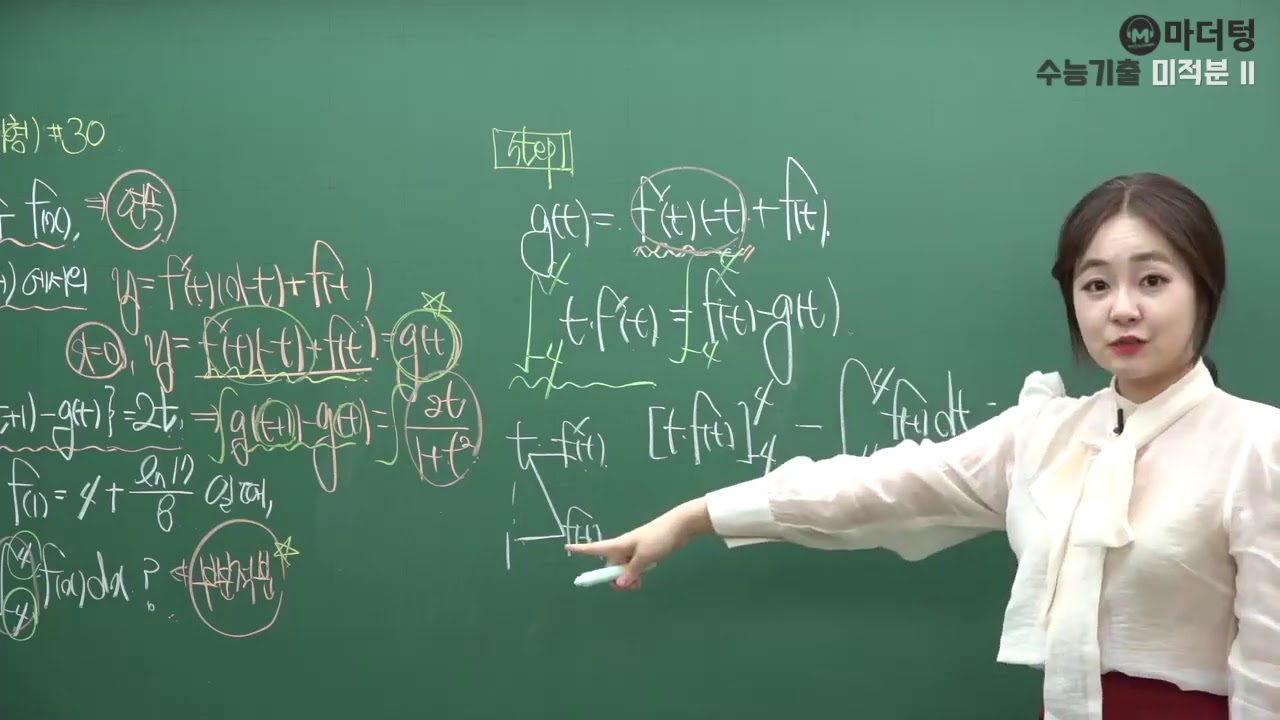 마더텅
수능기출 미적분 II
형) #30
f(x), ⇒
에서의 y=f'(t)(x-t)+f(t)
x=0, y=f'(t)(-t)+f(t)=g(t)
t+1)-g(t)}=2t, ⇒∫g(t+1)-g(t)=∫2t/1+t²
f(1)=4+ln17/8 일 때,
∫f(x)dx ? ← 부분적분
4
-4
step1
g(t)=f'(t)(-t)+f(t).
∫t·f'(t)=∫f(t)-g(t)
4
-4
4
-4
[t·f(t)]4-4 - ∫4f(t)dt =
t f'(t)
1 f(t)